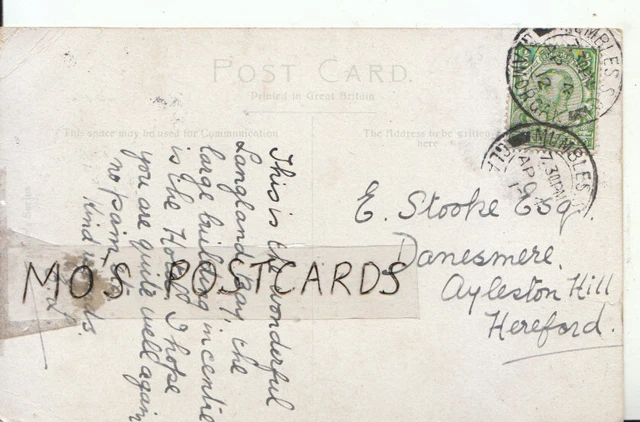 POST CARD.
Printed in Great Britain
This space may be used for Communication
The Address to be written
here
This is the wonderful
Langland Bay, the
large building in centre
is the Hotel. I hope
you are quite well again
no pain, &c.
Kind regards.
E. Stooke Esq.
Danesmere,
Ayleston Hill
Hereford.
MUMBLES
MUMBLES
7.30PM
AP
MOS POSTCARDS